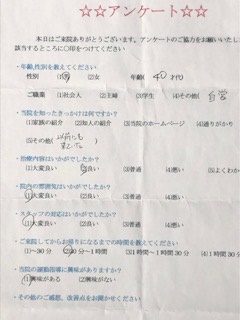 ☆☆アンケート☆☆
本日はご来院ありがとうございます。アンケートのご協力をお願いいたし
該当するところに○印をつけてください
・年齢,性別を教えてください
性別 (1)男 (2)女 年齢( 40 才代)
ご職業 (1)社会人 (2)主婦 (3)学生 (4)その他( 自営
・当院を知ったきっかけは何ですか?
(1)家族の紹介 (2)知人の紹介 (3)当院のホームページ (4)通りがかり
(5)その他( 以前にも来ていた
・治療内容はいかがでしたか?
(1)大変良い (2)良い (3)普通 (4)悪い (5)よくわか
・院内の雰囲気はいかがでしたか?
(1)大変良い (2)良い (3)普通 (4)悪い
・スタッフの対応はいかがでしたか?
(1)大変良い (2)良い (3)普通 (4)悪い
・ご来院してからお帰りになるまでの時間を教えてください
(1)～30分 (2)30分～1時間 (3)1時間～1時間30分 (4)1時間30分
・当院の運動指導に興味がありますか?
(1)興味がある (2)興味がない
・その他のご感想、改善点をお聞かせください